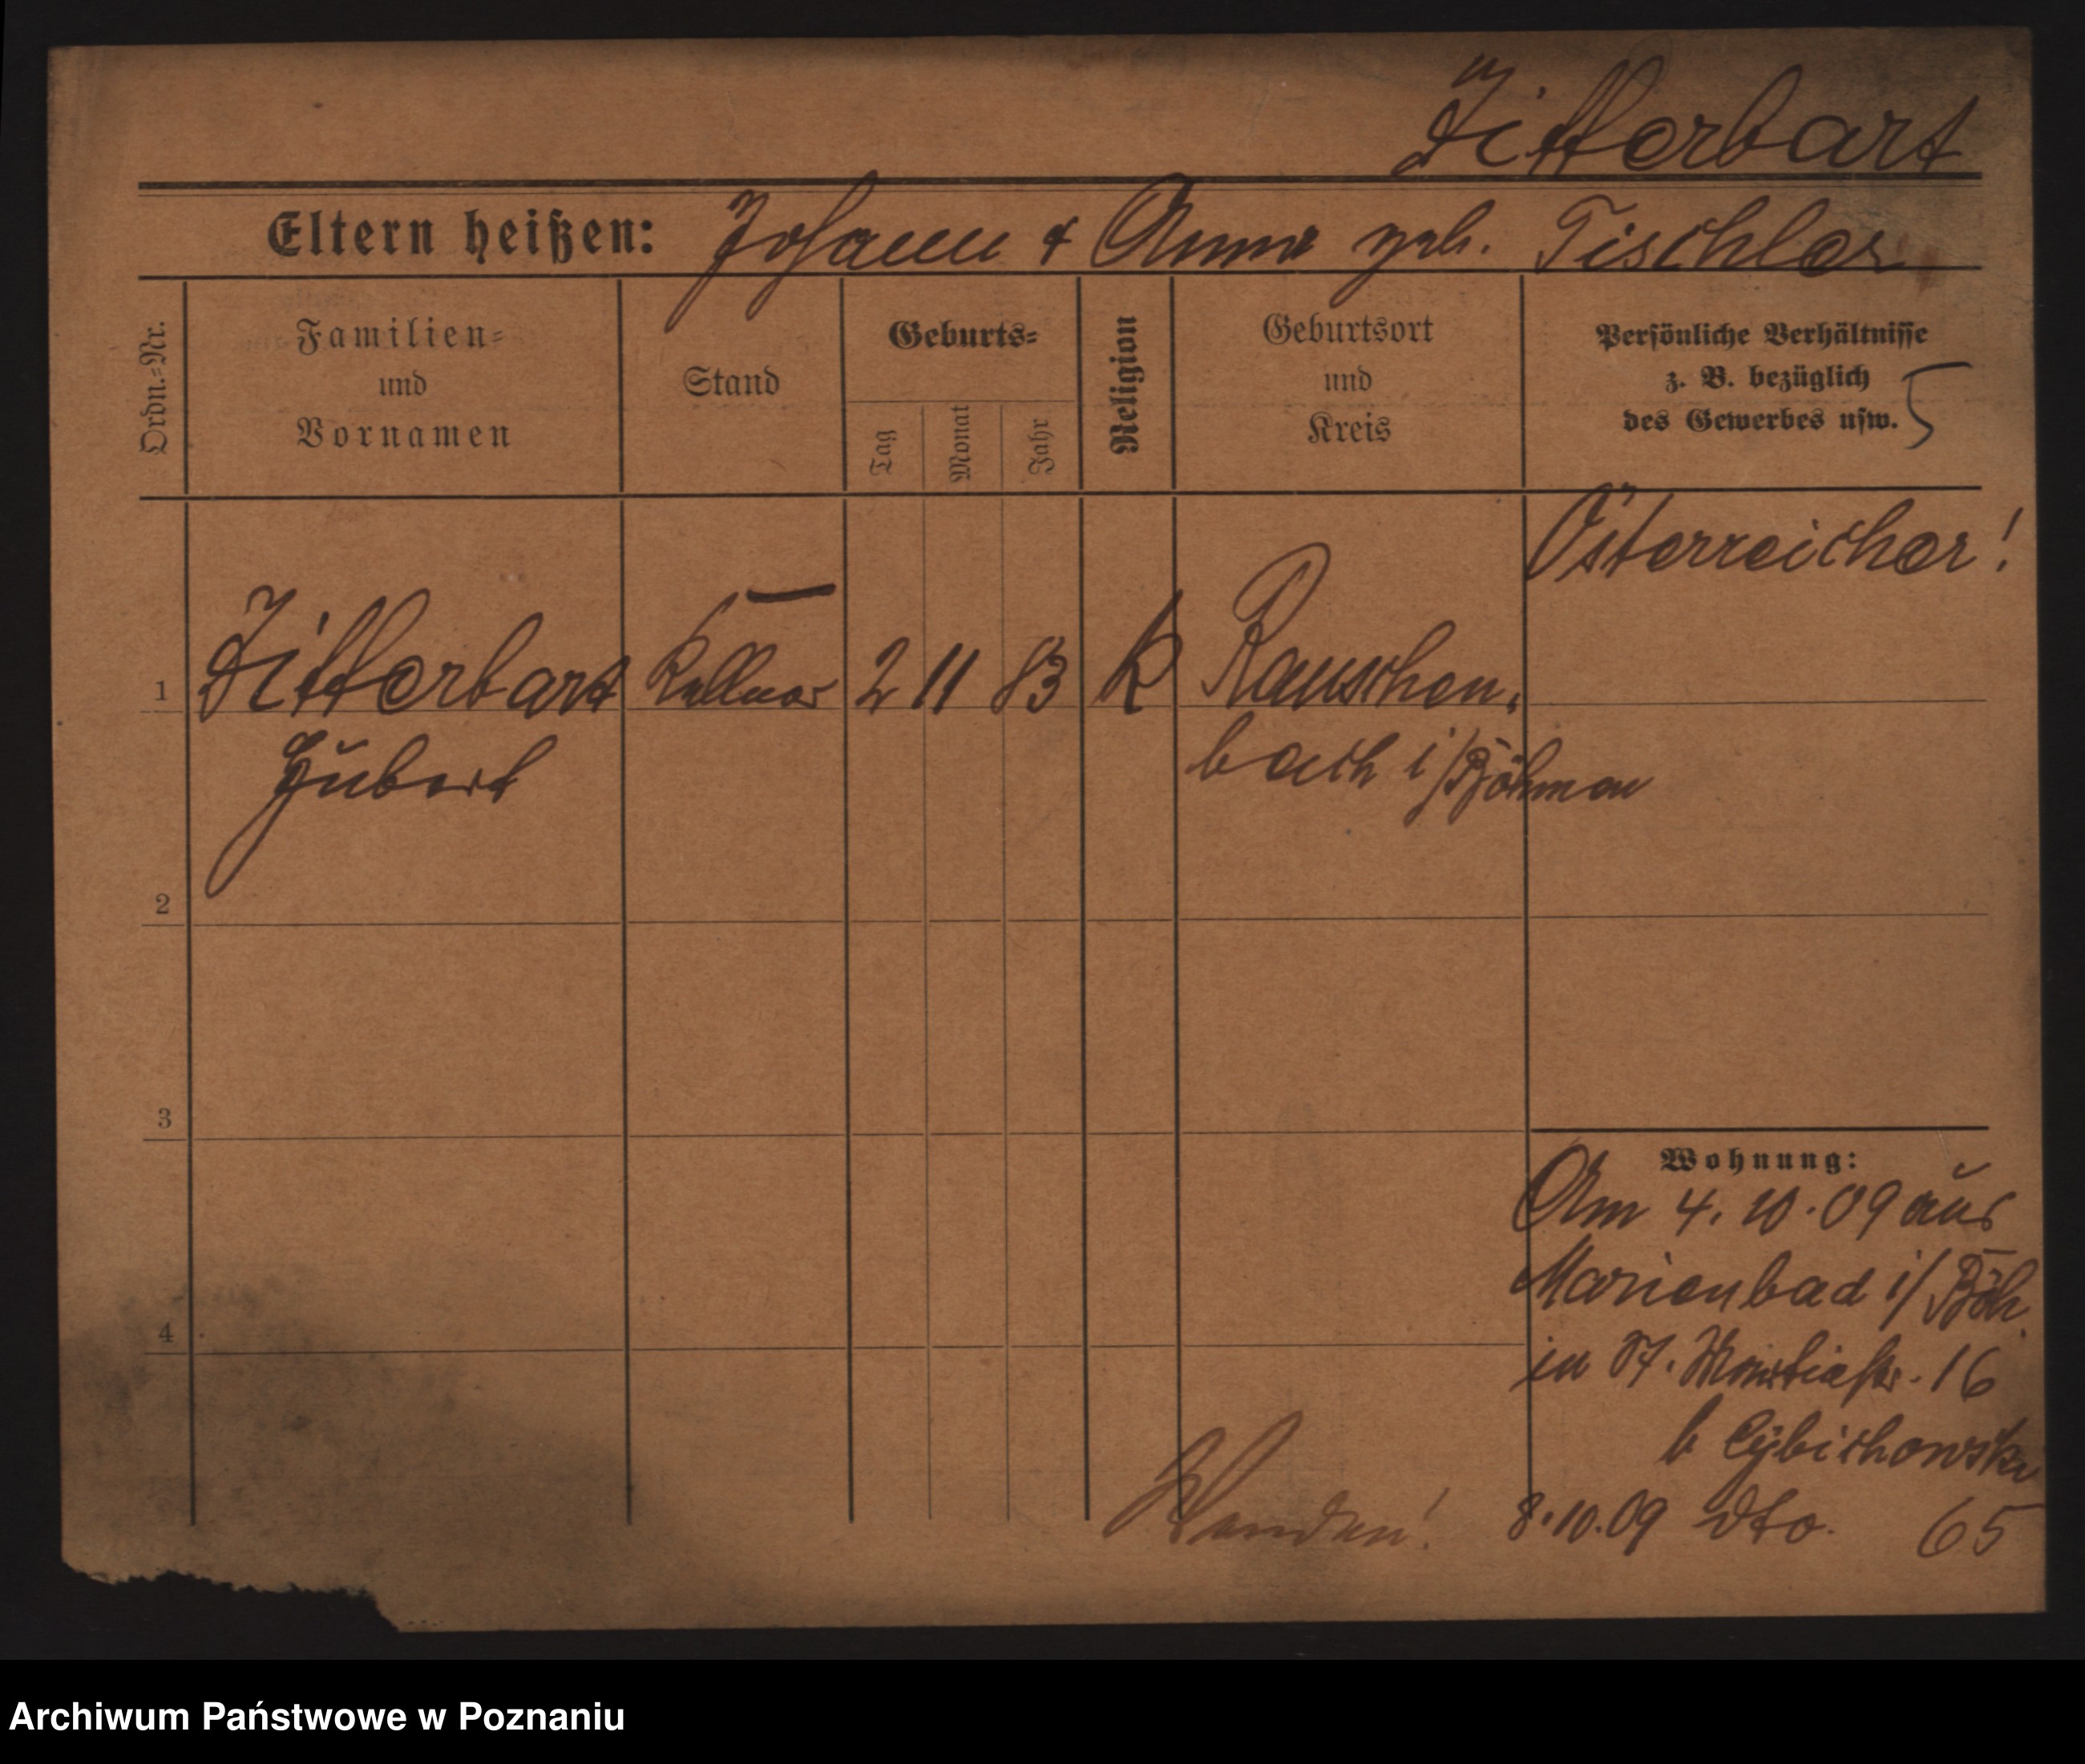 Zitterbart
Eltern heißen: Johann & Anna geb. Tischler
Ordn.=Nr.
Familien=
und
Vornamen
Stand
Geburts=
Tag
Monat
Jahr
Religion
Geburtsort
und
Kreis
Persönliche Verhältnisse
z. B. bezüglich
des Gewerbes usw.
5
Österreicher!
1 Zitterbart Kellner 2 11 83 K Rauschen-
Hubert bach i/Böhmen
2
3
4
Wohnung:
Am 4. 10. 09 aus
Marienbad i/Böh.
in 16
b Cybichowski
8.10.09 dto. 65
Wenden!
Archiwum Państwowe w Poznaniu